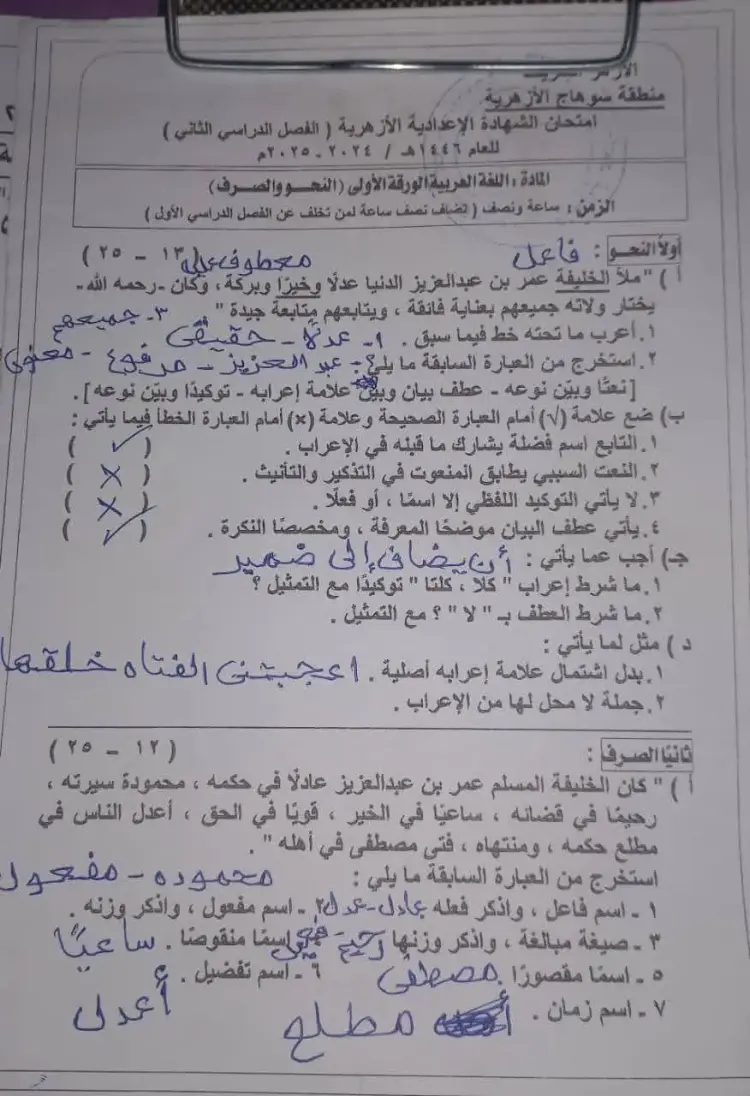 الأزهر الشريف
منطقة سوهاج الأزهرية
امتحان الشهادة الإعدادية الأزهرية ( الفصل الدراسي الثاني )
للعام ١٤٤٦هـ / ٢٠٢٤ - ٢٠٢٥م
المادة : اللغة العربية الورقة الأولى (النحو والصرف)
الزمن : ساعة ونصف ( تضاف نصف ساعة لمن تخلف عن الفصل الدراسي الأول )
أولا النحو : فاعل معطوف على ( ١٣ - ٢٥ )
أ ) " ملأ الخليفة عمر بن عبدالعزيز الدنيا عدلًا وخيرًا وبركة ، وكان -رحمه الله-
يختار ولاته جميعهم بعناية فائقة ، ويتابعهم متابعة جيدة " ٣- جميعهم
١. أعرب ما تحته خط فيما سبق . ١- عدلًا - حقيقى
٢. استخرج من العبارة السابقة ما يلي : ٢- عبد العزيز - مرفوع - معنوى
[ نعتًا وبيّن نوعه - عطف بيان وبيّن علامة إعرابه - توكيدًا وبيّن نوعه ] .
ب) ضع علامة (√) أمام العبارة الصحيحة وعلامة (×) أمام العبارة الخطأ فيما يأتي :
١. التابع اسم فضلة يشارك ما قبله في الإعراب . ( ✓ )
٢. النعت السببي يطابق المنعوت في التذكير والتأنيث . ( × )
٣. لا يأتي التوكيد اللفظي إلا اسمًا ، أو فعلًا . ( × )
٤. يأتي عطف البيان موضحًا المعرفة ، ومخصصًا النكرة . ( ✓ )
جـ) أجب عما يأتي : أن يضاف إلى ضمير
١. ما شرط إعراب " كلا ، كلتا " توكيدًا مع التمثيل ؟
٢. ما شرط العطف بـ " لا " ؟ مع التمثيل .
د ) مثل لما يأتي :
١. بدل اشتمال علامة إعرابه أصلية . اعجبتنى الفتاه خلقها
٢. جملة لا محل لها من الإعراب .
ثانيًا الصرف : ( ١٢ - ٢٥ )
أ ) " كان الخليفة المسلم عمر بن عبدالعزيز عادلًا في حكمه ، محمودة سيرته ،
رحيمًا في قضائه ، ساعيًا في الخير ، قويًا في الحق ، أعدل الناس في
مطلع حكمه ، ومنتهاه ، فتى مصطفى في أهله " .
استخرج من العبارة السابقة ما يلي : محموده - مفعول
١ - اسم فاعل ، واذكر فعله عادل - عدل ٢ - اسم مفعول ، واذكر وزنه .
٣ - صيغة مبالغة ، واذكر وزنها رحيم - فعيل اسمًا منقوصًا . ساعيًا
٥ - اسمًا مقصورًا . مصطفى ٦ - اسم تفضيل . أعدل
٧ - اسم زمان . مطلع